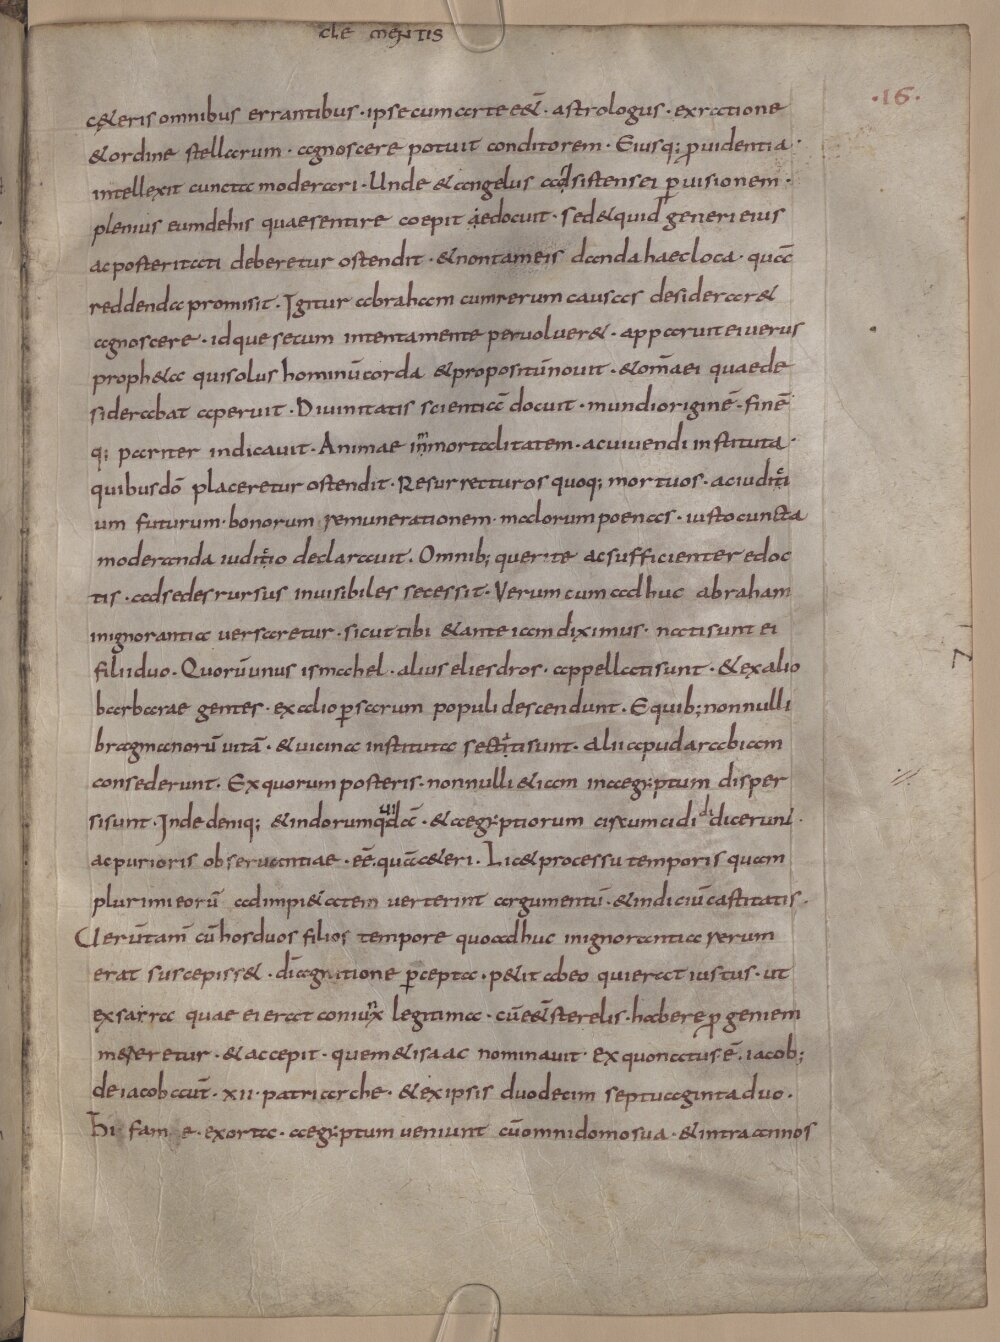 CLEMENTIS
·16·
c&eris omnibus errantibus · ipse cum arte eēt · astrologus · ex ratione
& ordine stellarum · agnoscere potuit conditorem · Eiusq; ꝓuidentia ·
intellexit cuncta moderari · Unde & angelus adsistens ei ꝑ uisionem ·
plenius eum de his quae sentire coepit aedocuit · sed & quid generi eius
ac posteritati deberetur ostendit · & non tam eis danda haec loca · quā
reddenda promisit · Igitur abraham cum rerum causas desiderar&
agnoscere · idque secum intenta mente peruoluer& · apparuit ei uerus
proph&a qui solus hominū corda & propositū nouit · & om̄a ei quae de
siderabat aperuit · Diuinitatis scientiā docuit · mundi originē · finē
q; pariter indicauit · Animae inmortalitatem · ac uiuendi instituta ·
quibus dō placeretur ostendit · Resurrecturos quoq; mortuos · ac iuditi
um futurum · bonorum remunerationem · malorum poenas · iusto cuncta
moderanda iuditio declarauit · Omnib; querite ac sufficienter edoc
tis · ad sedes rursus inuisibiles secessit · Verum cum adhuc abraham
in ignorantia uersaretur · sicut tibi & ante iam diximus · nati sunt ei
filii duo · Quorū unus ismahel · alius eliesdros · appellati sunt · & ex alio
barbarae gentes · ex alio ꝑsarum populi descendunt · E quib; nonnulli
bragmanorū uitā · & uicina instituta sectati sunt · alii apud arabiam
consederunt · Ex quorum posteris · nonnulli & iam in aegyptum disper
si sunt · Inde deniq; & indorum quidā · & aegyptiorum circumcidi didicerunt ·
ac purioris obseruantiae · eē · quā c&eri · Lic& processu temporis quam
plurimi eorū ad impi&atem uerterint argumentū · & indiciū castitatis ·
Uerūtam̄ cū hos duos filios tempore quo adhuc in ignorantia rerum
erat suscepiss& · dī agnitione ꝑcepta · p&it ab eo qui erat iustus · ut
ex sarra quae ei erat coniunx legitima · cū eēt sterelis · habere ꝓgeniem
mereretur · & accepit · quem & isaac nominauit · Ex quo natus ē · iacob;
de iacob aūt · xii · patriarche · & ex ipsis duodecim septuaginta duo ·
Hi fame · exorta · aegyptum ueniunt cū omni domo sua · & intra annos